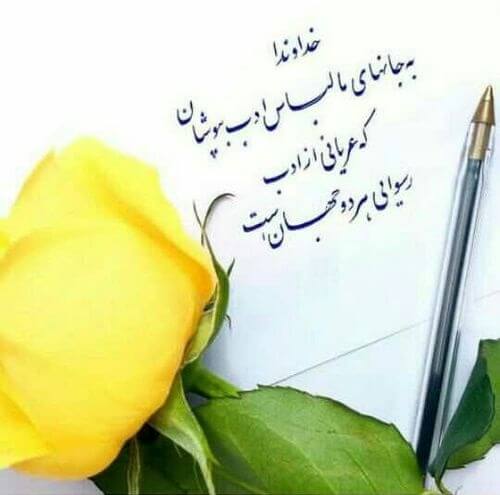 خداوندا
به جانهای ما لباس ادب بپوشان
که عریانی از ادب
رسوایی هر دو جهان است